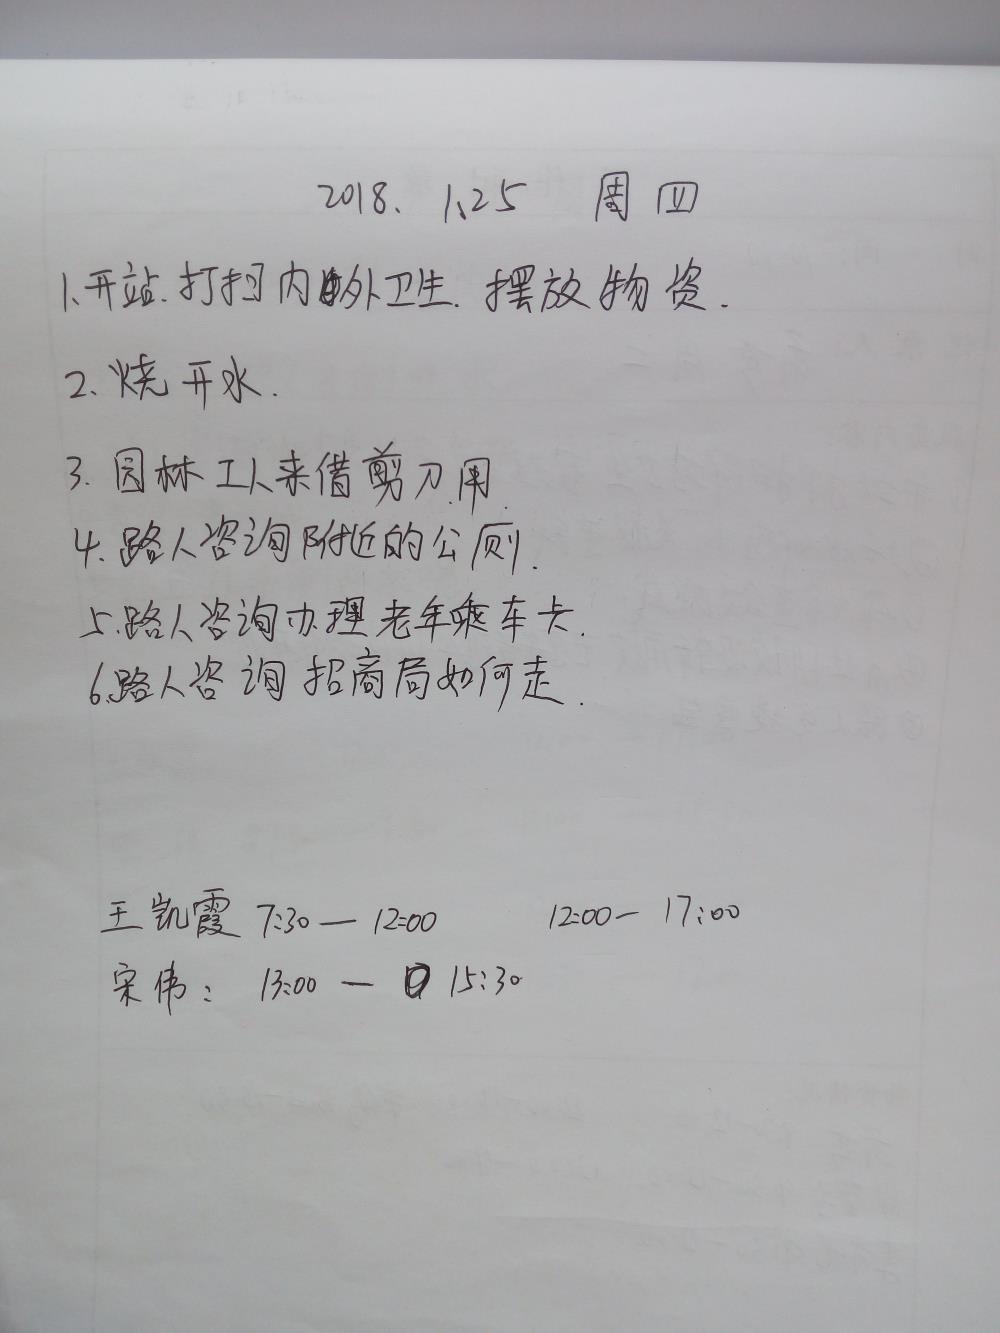 2018. 1.25 周四
1.开站.打扫内外卫生.摆放物资.
2.烧开水.
3.园林工人来借剪刀用.
4.路人咨询附近的公厕.
5.路人咨询办理老年乘车卡.
6.路人咨询招商局如何走.
王凯霞 7:30—12:00 12:00—17:00
宋伟: 13:00—15:30